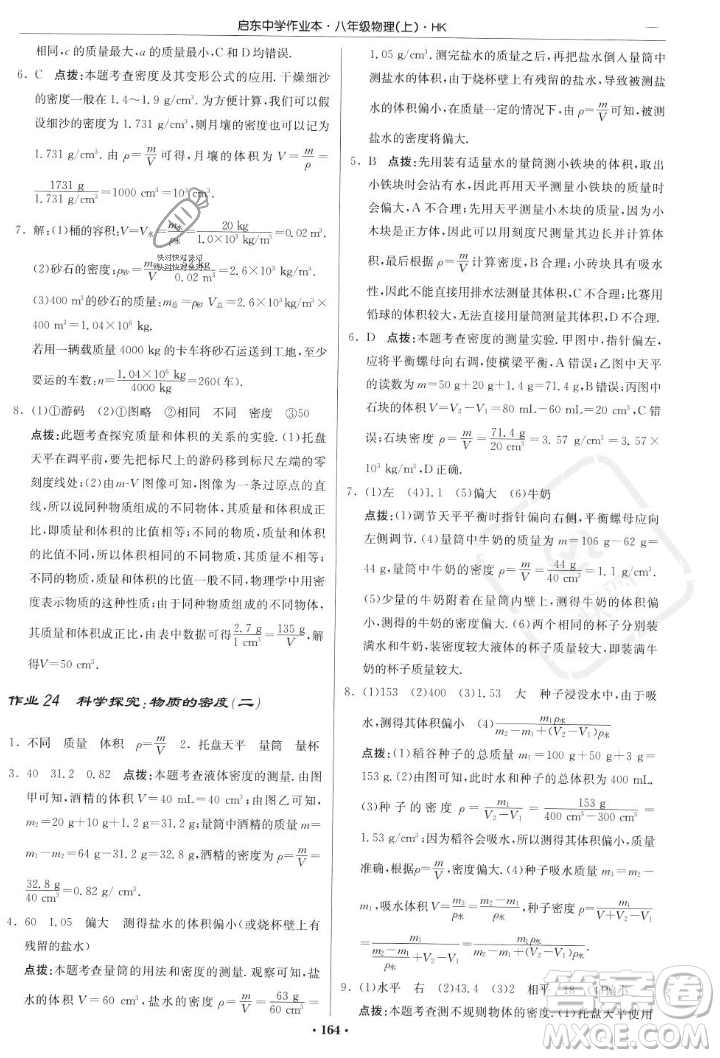 启东中学作业本·八年级物理(上)·HK
相同，c 的质量最大，a 的质量最小，均错误.
6. C 点拨：本题考查密度及其变形公式的应用. 干燥细沙
的密度一般在 1.4～1.9 g/cm³. 根据估计值，我们可以假
设细沙的密度为 1.731 g/cm³，则月壤的密度也约为
1.731 g/cm³. 由 ρ=m/V 可得，月壤的体积为 V=m/ρ=
1731 g/1.731 g/cm³=1000 cm³=10³ cm³.
7. 解：(1)桶的容积：V=V水=m水/ρ水=20 kg/1.0×10³ kg/m³=0.02 m³
(2)砂石的密度：ρ砂=m/V= /0.02 m³=2.6×10³ kg/m³
(3)400 m³的砂石的质量：m总=ρ砂V总=2.6×10³ kg/m³×
400 m³=1.04×10⁶ kg
若用一辆载质量 4000 kg 的卡车将砂石运送到工地，至少
要运的车数：n=1.04×10⁶ kg/4000 kg=260(车).
8. (1)①游码 (2)①图略 ②相同 不同 密度 ③50
点拨：此题考查探究质量和体积的关系的实验. (1)托盘
天平在调平前，要先把标尺上的游码移到左端的零刻
度线处；(2)由 m-V 图像可知，图像为一条过原点的直
线，所以说明，同种物质组成的不同物体，其质量与体
积成正比，所以，同种物质组成的不同物体，质量与体积
的比相同；不同种物质组成的不同物体，质量与体积的
比一般不同，因此这个比值反映了物质的一种性质，物
理学中将其定义为密度. 所以，物理学中用密度表示不同
物质的这种性质；由于同种物质组成的不同物体，其质
量与体积成正比，故由表中数据有2.7 g/1 cm³=135 g/V，解
得V=50 cm³.
作业 24 科学探究：物质的密度(二)
1. 不同 质量 体积 ρ=m/V 2. 托盘天平 量筒 量杯
3. 40 31.2 0.82 点拨：本题考查液体密度的测量. 由图
甲可知，酒精的体积为 V=40 mL=40 cm³；由图乙可知，
剩余酒精和烧杯的总质量为 31.2 g；量筒中酒精的质量
m=m总-m剩=64 g-31.2 g=32.8 g，酒精的密度ρ=m/V=
32.8 g/40 cm³=0.82 g/cm³.
4. 60 1.05 偏大 测得盐水的体积偏小(或烧杯壁上有
残留的盐水)
点拨：本题考查量筒的用法和密度的测量. 观察可知，盐
水的体积为 V=60 mL=60 cm³，盐水的密度ρ=m/V=63 g/60 cm³=
1.05 g/cm³. 测完盐水的质量后，再把盐水倒入量筒中测
盐水的体积，由于烧杯壁上有残留的盐水，导致测量盐水
的体积偏小，在质量一定的情况下，由ρ=m/V可知，被测
盐水的密度将偏大.
5. B 点拨：先用装有适量水的量筒测小铁块的体积，取出
小铁块时会沾有水，因此再用天平测量小铁块的质量会
偏大，A 不合理；先用天平测量小木块的质量，再测量小
木块的体积，由图可知，可以用刻度尺测量其边长并计算
体积，用公式ρ=m/V计算密度，B 合理；小砖块具有吸水
性，因此不能直接用排水法测量其体积，C 不合理；比赛用
铅球的体积较大，无法放入量筒，D 不合理.
6. D 点拨：本题考查密度的测量实验. 甲图中指针右偏，
应将平衡螺母向左调，使横梁平衡，A 错误；乙图中天平
读数为石块的质量 m=50 g+20 g+1.4 g=71.4 g，丙图中
石块的体积 V=V₂-V₁=80 mL-60 mL=20 cm³，B、C 错
误；石块密度ρ=m/V=71.4 g/20 cm³=3.57 g/cm³=3.57×
10³ kg/m³，D 正确.
7. (1)左 (4)1.1 (5)偏大 (6)牛奶
点拨：(1)调节天平平衡时指针偏向右侧，平衡螺母应向
左调. (4)量筒中牛奶的质量为 m=106 g-62 g=
44 g，量筒中牛奶的密度ρ=m/V=44 g/40 cm³=1.1 g/cm³.
(5)少量的牛奶附着在量筒内壁上，测得牛奶的体积偏
小，测得的密度偏大. (6)两个相同的杯子分别装
满牛奶和水，装密度较大液体的杯子质量较大，装满牛
奶的杯子质量较大.
8. (1)153 (2)400 (3)1.53 大 种子浸没水中，由于吸
水，测得其体积偏小 (4)m₁ρ水/m₂-m₁+(V₂-V₁)ρ水
点拨：(1)稻谷种子的总质量 m₁=100 g+50 g+3 g=
153 g. (2)由图可知，此时水和种子的总体积为 400 cm³.
(3)种子的密度ρ=m₁/V₂-V₁=153 g/400 cm³-300 cm³=
1.53 g/cm³. 因为稻谷会吸水，所以测量的体积偏小，质量
准确，根据ρ=m/V可知，测量的密度偏大.
(4)根据题意可得，种子吸水的质量 m₃=m₂-
m₁，吸水的体积 V=m₃/ρ水=m₂-m₁/ρ水，种子密度ρ=m₁/V+V₂-V₁
=m₁/m₂-m₁/ρ水+V₂-V₁=m₁ρ水/m₂-m₁+(V₂-V₁)ρ水.
9. (1)水平 右 (2)43.2 (3)2 相平 18 (4)偏小
点拨：本题考查测不规则物体的密度. (1)托盘天平使用
·164·
快对快对快对
快对快对快对
答案圈
MXQE.COM